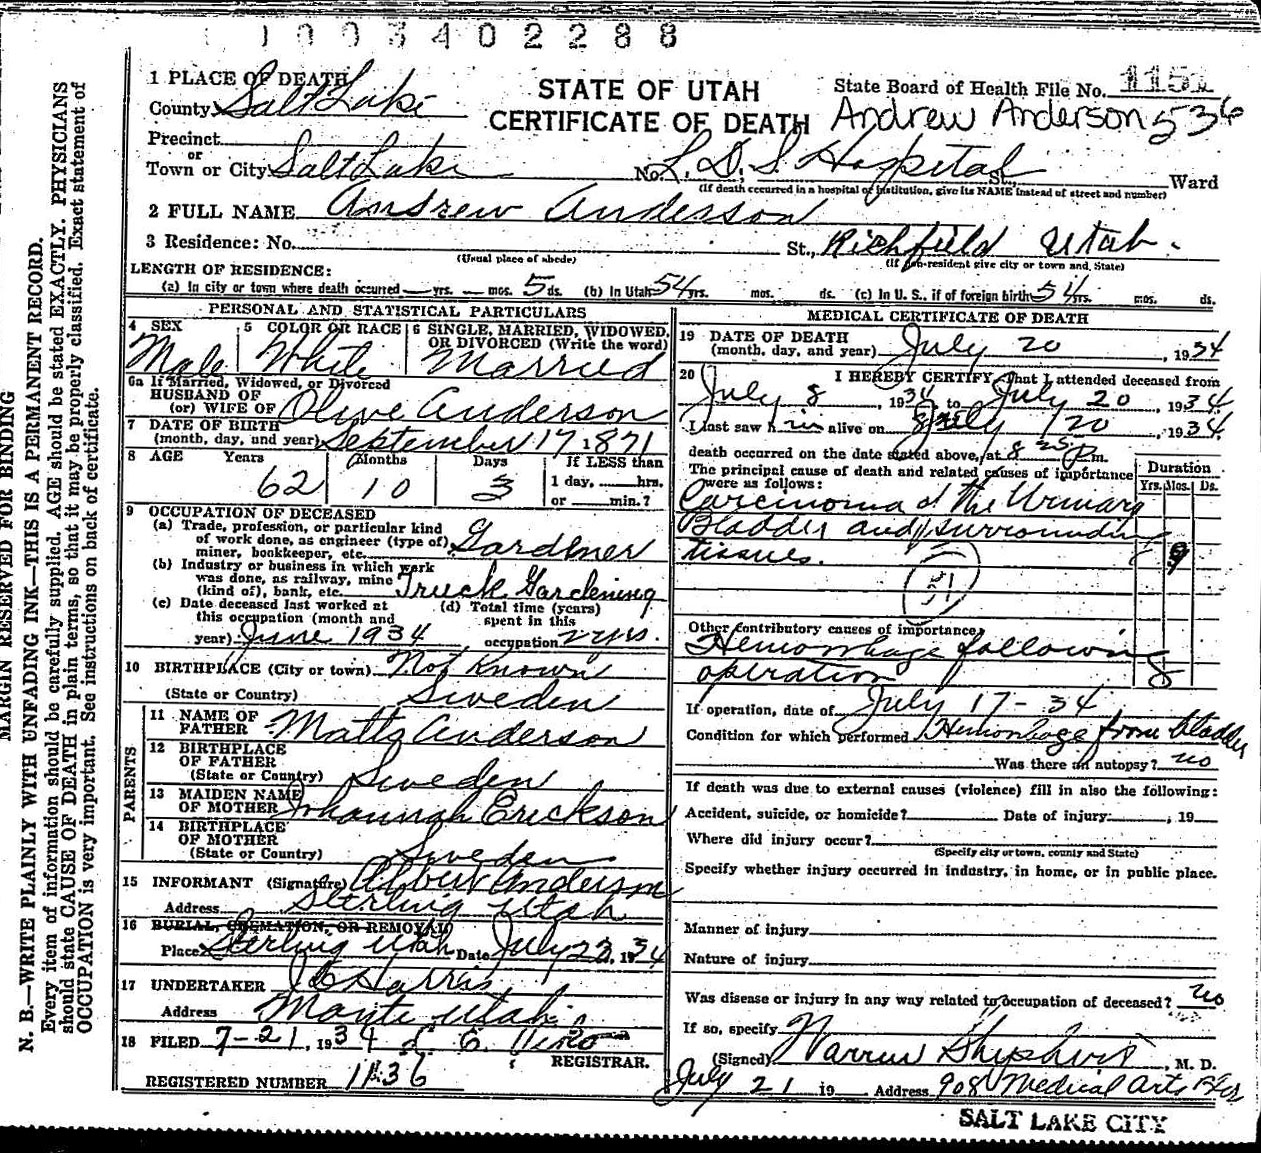 1003402288
1 PLACE OF DEATH
County Salt Lake
Precinct
or
Town or City Salt Lake
STATE OF UTAH
CERTIFICATE OF DEATH
State Board of Health File No. 1151
Andrew Anderson 536
No. L. D. S. Hospital St., Ward
(If death occurred in a hospital or institution, give its NAME instead of street and number)
2 FULL NAME Andrew Anderson
3 Residence: No. St., Richfield Utah.
(Usual place of abode) (If non-resident give city or town and State)
LENGTH OF RESIDENCE:
(a) In city or town where death occurred — yrs. — mos. 5 ds. (b) In Utah 54 yrs. mos. ds. (c) In U. S., if of foreign birth 54 yrs. mos. ds.
PERSONAL AND STATISTICAL PARTICULARS
4 SEX
Male
5 COLOR OR RACE
White
6 SINGLE, MARRIED, WIDOWED,
OR DIVORCED (Write the word)
Married
6a If Married, Widowed, or Divorced
HUSBAND OF
(or) WIFE OF Olive Anderson
7 DATE OF BIRTH
(month, day, and year) September 17, 1871
8 AGE Years Months Days If LESS than
62 10 3 1 day, hrs.
or min.?
9 OCCUPATION OF DECEASED
(a) Trade, profession, or particular kind
of work done, as engineer (type of)
miner, bookkeeper, etc. Gardener
(b) Industry or business in which work
was done, as railway, mine
(kind of), bank, etc. Truck Gardening
(c) Date deceased last worked at
this occupation (month and
year) June 1934
(d) Total time (years)
spent in this
occupation 2 yrs.
10 BIRTHPLACE (City or town) Not Known
(State or Country) Sweden
PARENTS
11 NAME OF
FATHER Matts Anderson
12 BIRTHPLACE
OF FATHER
(State or Country) Sweden
13 MAIDEN NAME
OF MOTHER Johannah Erickson
14 BIRTHPLACE
OF MOTHER
(State or Country) Sweden
15 INFORMANT (Signature) Albert Anderson
Address Sterling Utah
16 BURIAL, CREMATION, OR REMOVAL
Place Sterling Utah Date July 23, 1934
17 UNDERTAKER Harris
Address Manti Utah
18 FILED 7-21, 1934
REGISTRAR.
REGISTERED NUMBER 1136
MEDICAL CERTIFICATE OF DEATH
19 DATE OF DEATH
(month, day, and year) July 20, 1934
20 I HEREBY CERTIFY, That I attended deceased from
July 8, 1934, to July 20, 1934.
I last saw him alive on July 20, 1934.
death occurred on the date stated above, at 8 25 p m.
The principal cause of death and related causes of importance
were as follows:
Duration
Yrs. Mos. Ds.
Carcinoma of the Urinary
Bladder and surrounding
tissues. 9
51
Other contributory causes of importance
Hemorrhage following
operation 8
If operation, date of July 17 - 34
Condition for which performed Hemorrhage from bladder
Was there an autopsy? no
If death was due to external causes (violence) fill in also the following:
Accident, suicide, or homicide? Date of injury , 19
Where did injury occur?
(Specify city or town, county and State)
Specify whether injury occurred in industry, in home, or in public place.
Manner of injury
Nature of injury
Was disease or injury in any way related to occupation of deceased? no
If so, specify
(Signed) Warren Shepherd, M. D.
July 21 19 Address 908 Medical Arts Bldg
SALT LAKE CITY
MARGIN RESERVED FOR BINDING
N. B.—WRITE PLAINLY WITH UNFADING INK—THIS IS A PERMANENT RECORD.
Every item of information should be carefully supplied. AGE should be stated EXACTLY. PHYSICIANS
should state CAUSE OF DEATH in plain terms, so that it may be properly classified. Exact statement of
OCCUPATION is very important. See instructions on back of certificate.